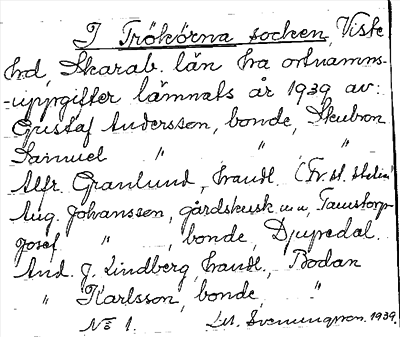 I Trökörna socken, Viste
hrd, Skarab. län ha ortnamns-
-uppgifter lämnats år 1939 av:
Gustaf Andersson, bonde, Skubron
Samuel " " "
Alfr. Granlund, handl. (Fr. st.
Aug. Johanssen, gårdskusk Taustorp
Josef " , bonde, Djupedal.
And. J. Lindberg, handl., Bodan
" Karlsson, bonde, "
No 1. Sveningsson. 1939.